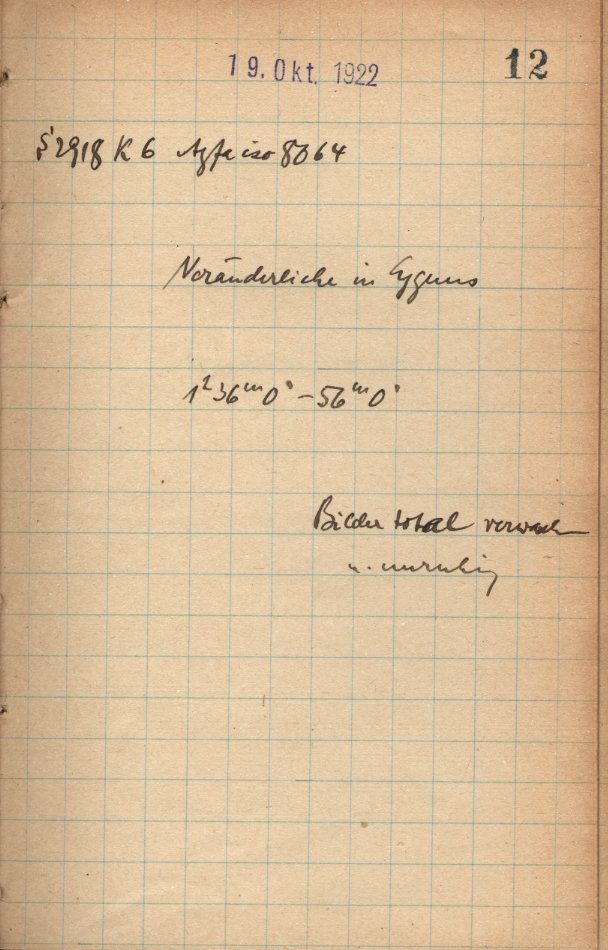 19. Okt. 1922 12
S 2918 K 6 Agfa iso 8064
Veränderliche in Cygnus
1ʰ 36ᵐ 0ˢ – 56ᵐ 0ˢ
Bilder total verwaschen
u. unruhig